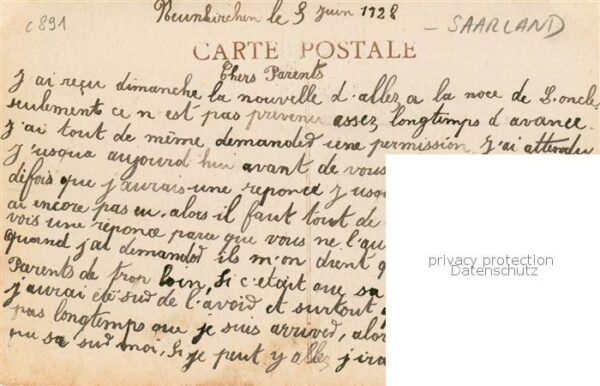 c891
Neunkirchen le 3 Juin 1928
SAARLAND
CARTE POSTALE
Chers Parents
J'ai reçu dimanche la nouvelle d'allez a la noce de L'oncle
seulement ce n est pas prevenu assez longtemps d'avance.
J'ai tout de même demanded une permission. J'ai attendu
J'usqua aujourd hui avant de vous
défois que j'aurais une reponce J usqu
ai encore pas eu, alors il faut tout de
vois une réponce parce que vous ne l'au
quand j'ai demanded ils m'on dient q
Parents de trop loin, Si c'était que sa
j'aurai été sud de l'avoid et surtout
pas longtemps que je suis arrived, alor
que sa sud moi, Si je peut y allez j'ira
privacy protection
Datenschutz